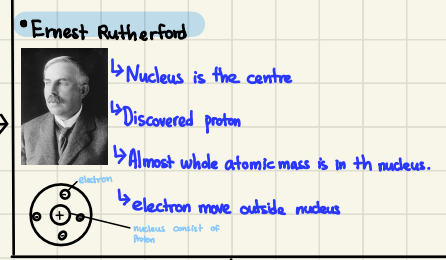 • Ernest Rutherford
↳ Nucleus is the centre
↳ Discovered proton
↳ Almost whole atomic mass is in th nucleus.
electron
↳ electron move outside nucleus
+
nucleus consist of
Proton